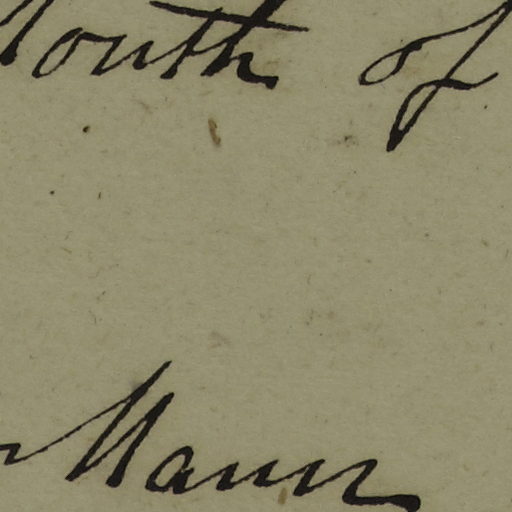 outh of
Mann